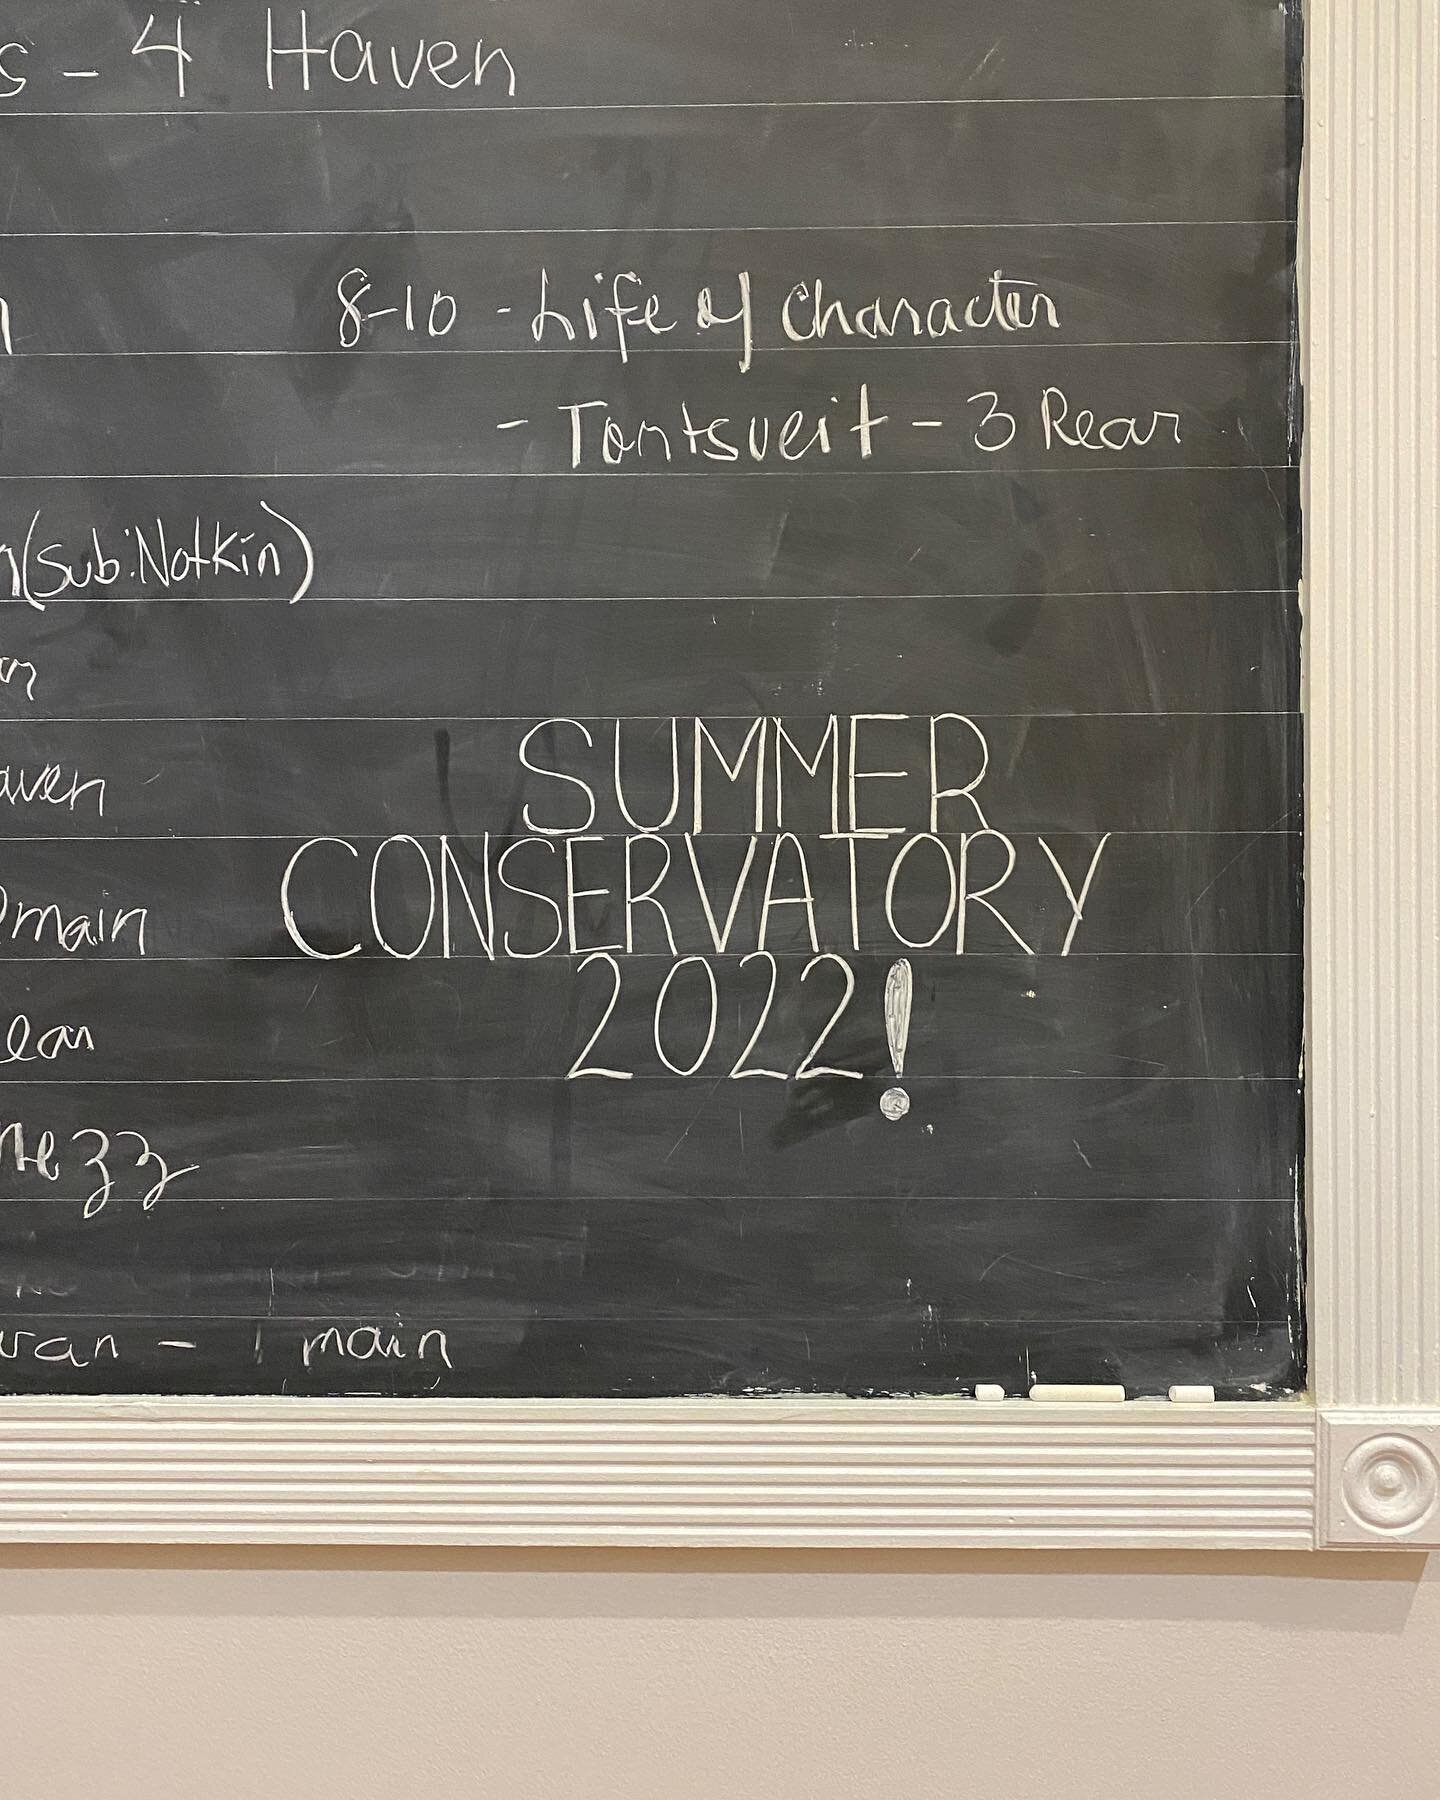 s - 4 Haven
8-10 - Life of Character
- Tontsveit - 3 Rear
(Sub: Notkin)
SUMMER
CONSERVATORY
main
2022!
mezz
van - 1 main